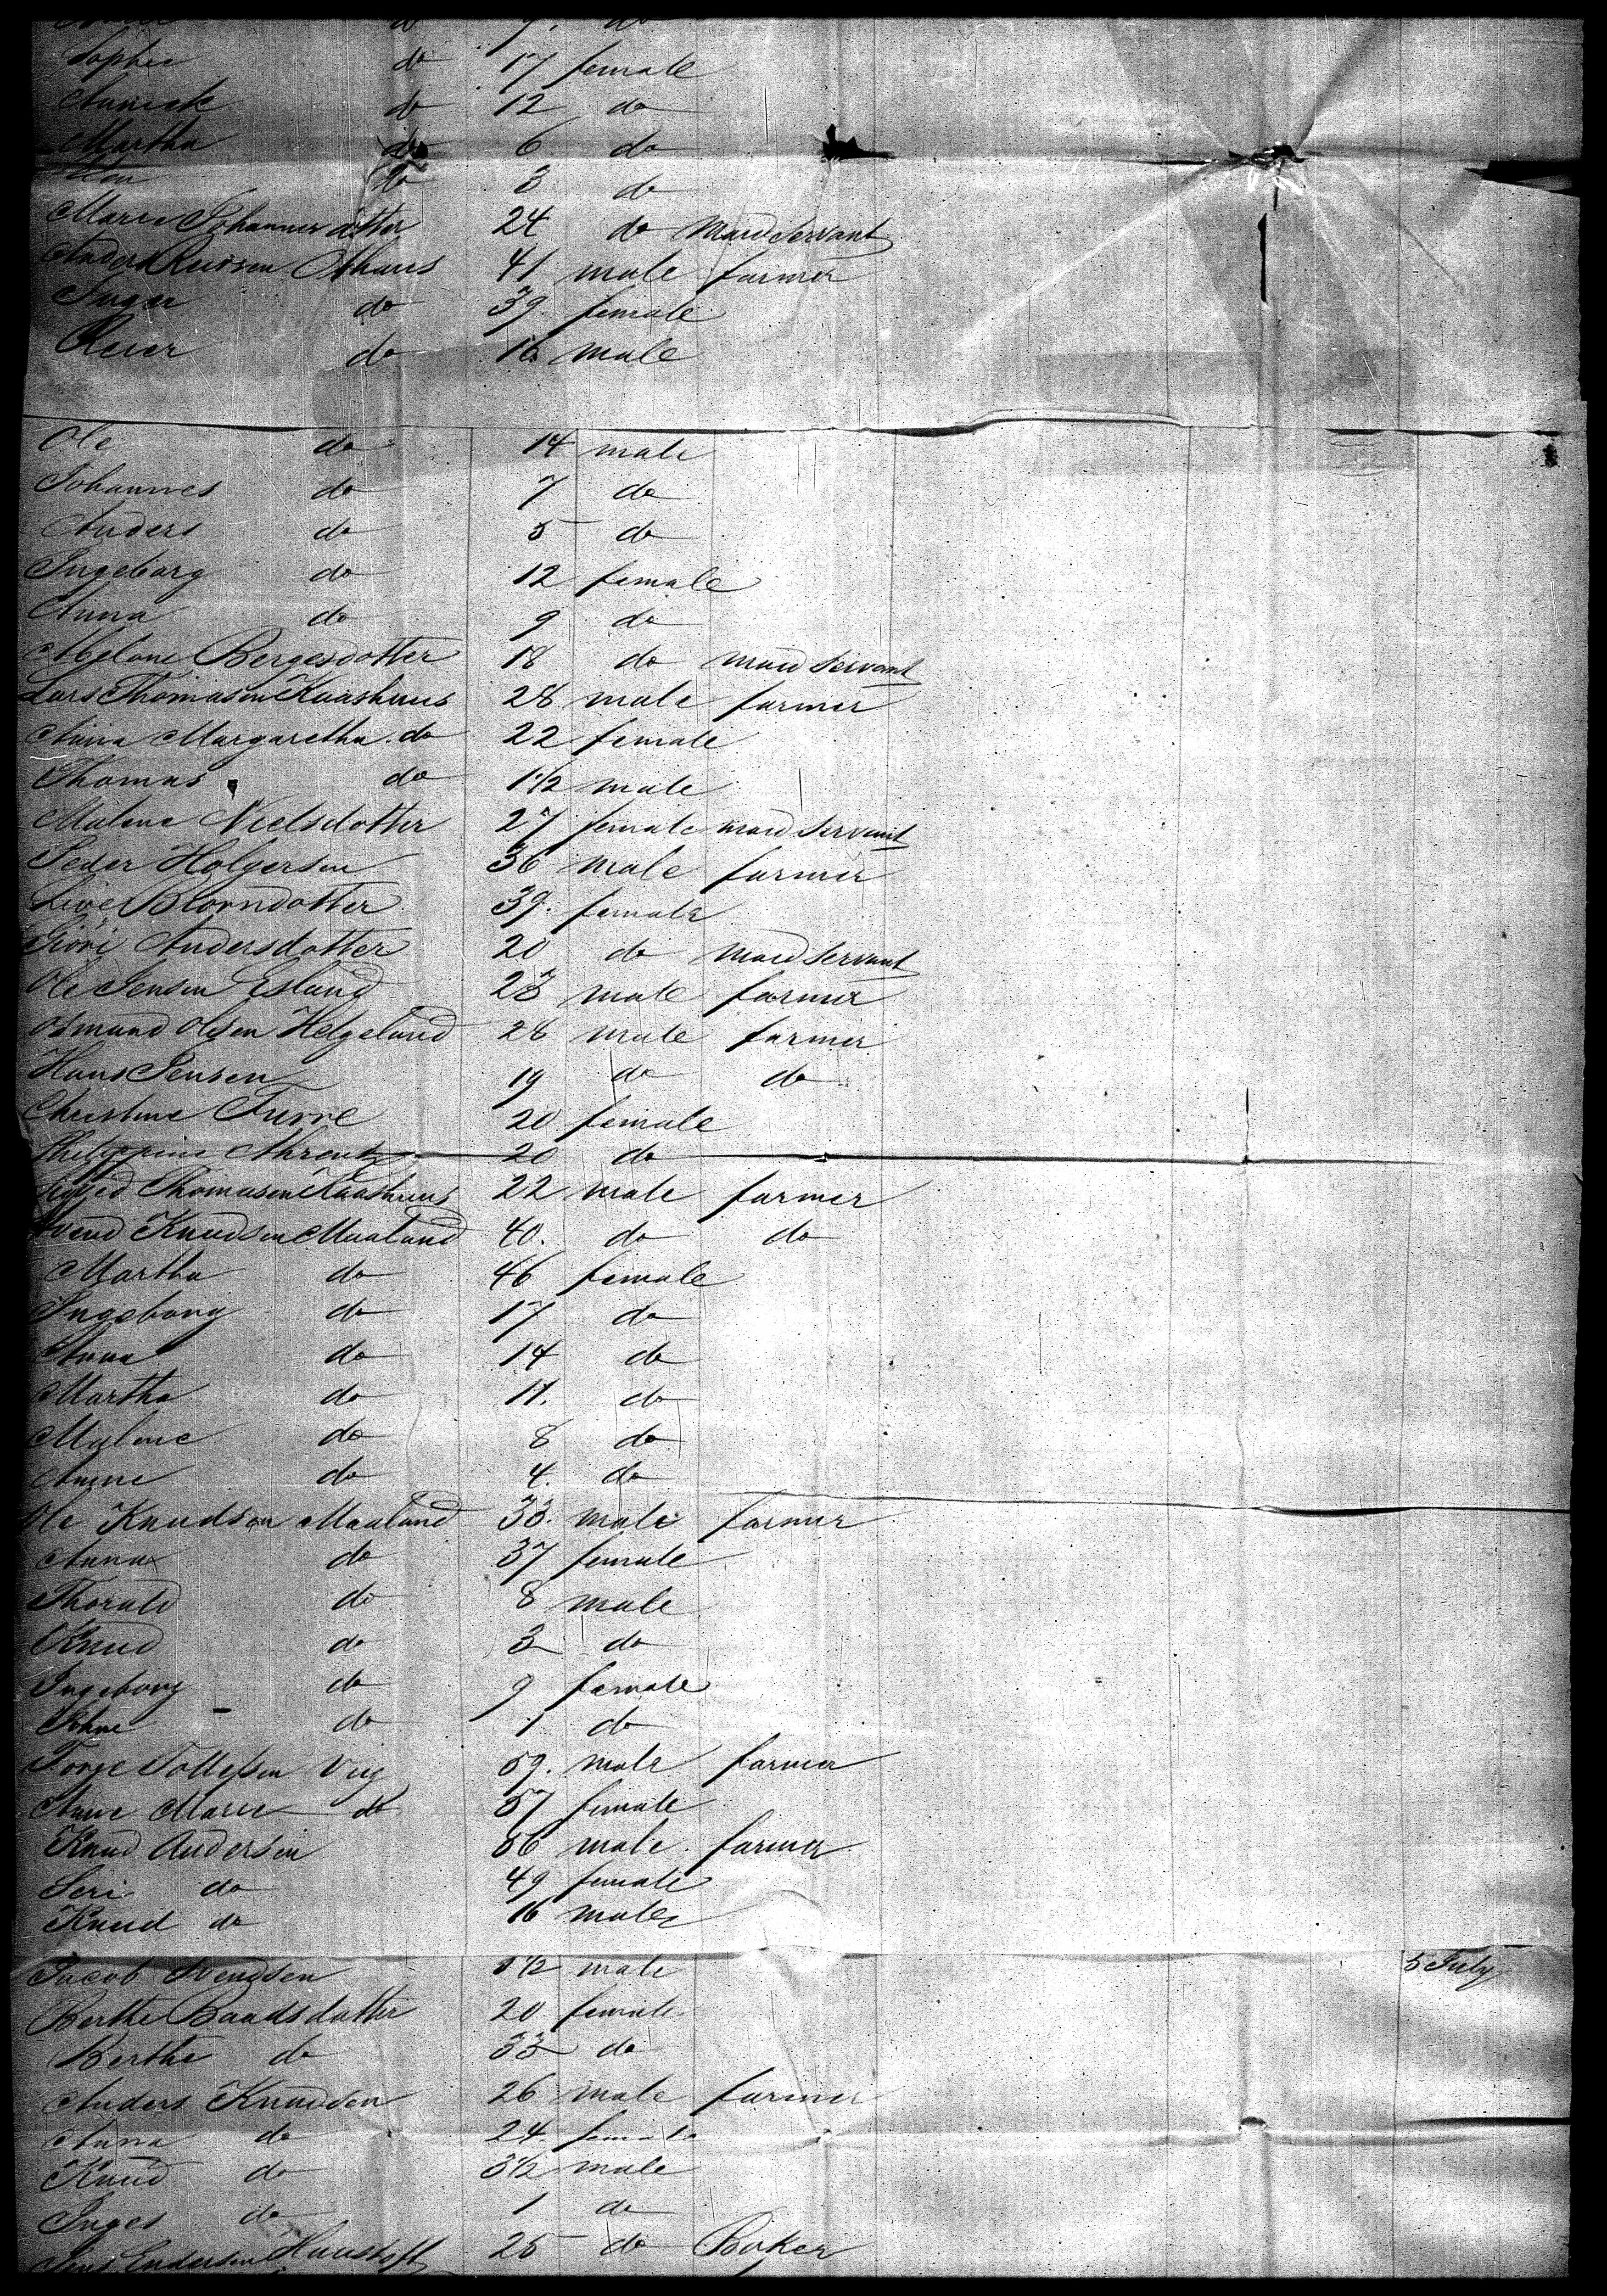 do 9. do
Sophie do 17 female
do 12 do
Martha do 6 do
do 3 do
Marie Johannesdotter 24 do maid servant
Anders 41 male farmer
Inger do 39. female
Reier do 16 male
Ole do 14 male
Johannes do 7 do
Anders do 5 do
Ingeborg do 12 female
Anna do 9 do
Bergesdotter 18 do maid servant
Lars Thomasen Kaashuus 28 male farmer
Anna Margaretha do 22 female
Thomas do 1 1/2 male
Malene Nielsdotter 27 female maid servant
Peder Holgersen 36 male farmer
Live Biorndotter 39. female
Siöri Andersdotter 20 do maid servant
Ole Jensen Esland 23 male farmer
Osmund Olsen Helgeland 28 male farmer
Hans Jensen 19 do do
Christine Furre 20 female
Philippine Ahrentz 20 do
Thomasen Kaashuus 22 male farmer
Svend Knudsen Maaland 40. do do
Martha do 46 female
Ingeborg do 17 do
Anna do 14 do
Martha do 11. do
Malene do 8 do
Anne do 4. do
Ole Knudsen Maaland 33. male farmer
Anna do 37 female
Thorald do 8 male
Knud do 3 do
Ingeborg do 9 female
do 1 do
Torge Tollefsen Vig 59. male farmer
Anne Marie do 57 female
Knud Andersen 56 male. farmer
Seri do 49 female
Knud do 16 male
Jacob Svendsen 1/2 male 5 July
Berthe Baardsdatter 20 female
Berthe do 33 do
Anders Knudsen 26 male farmer
Anna do 24 female
Knud do 3 1/2 male
Inger do 1 do
Endersen 25 do Baker